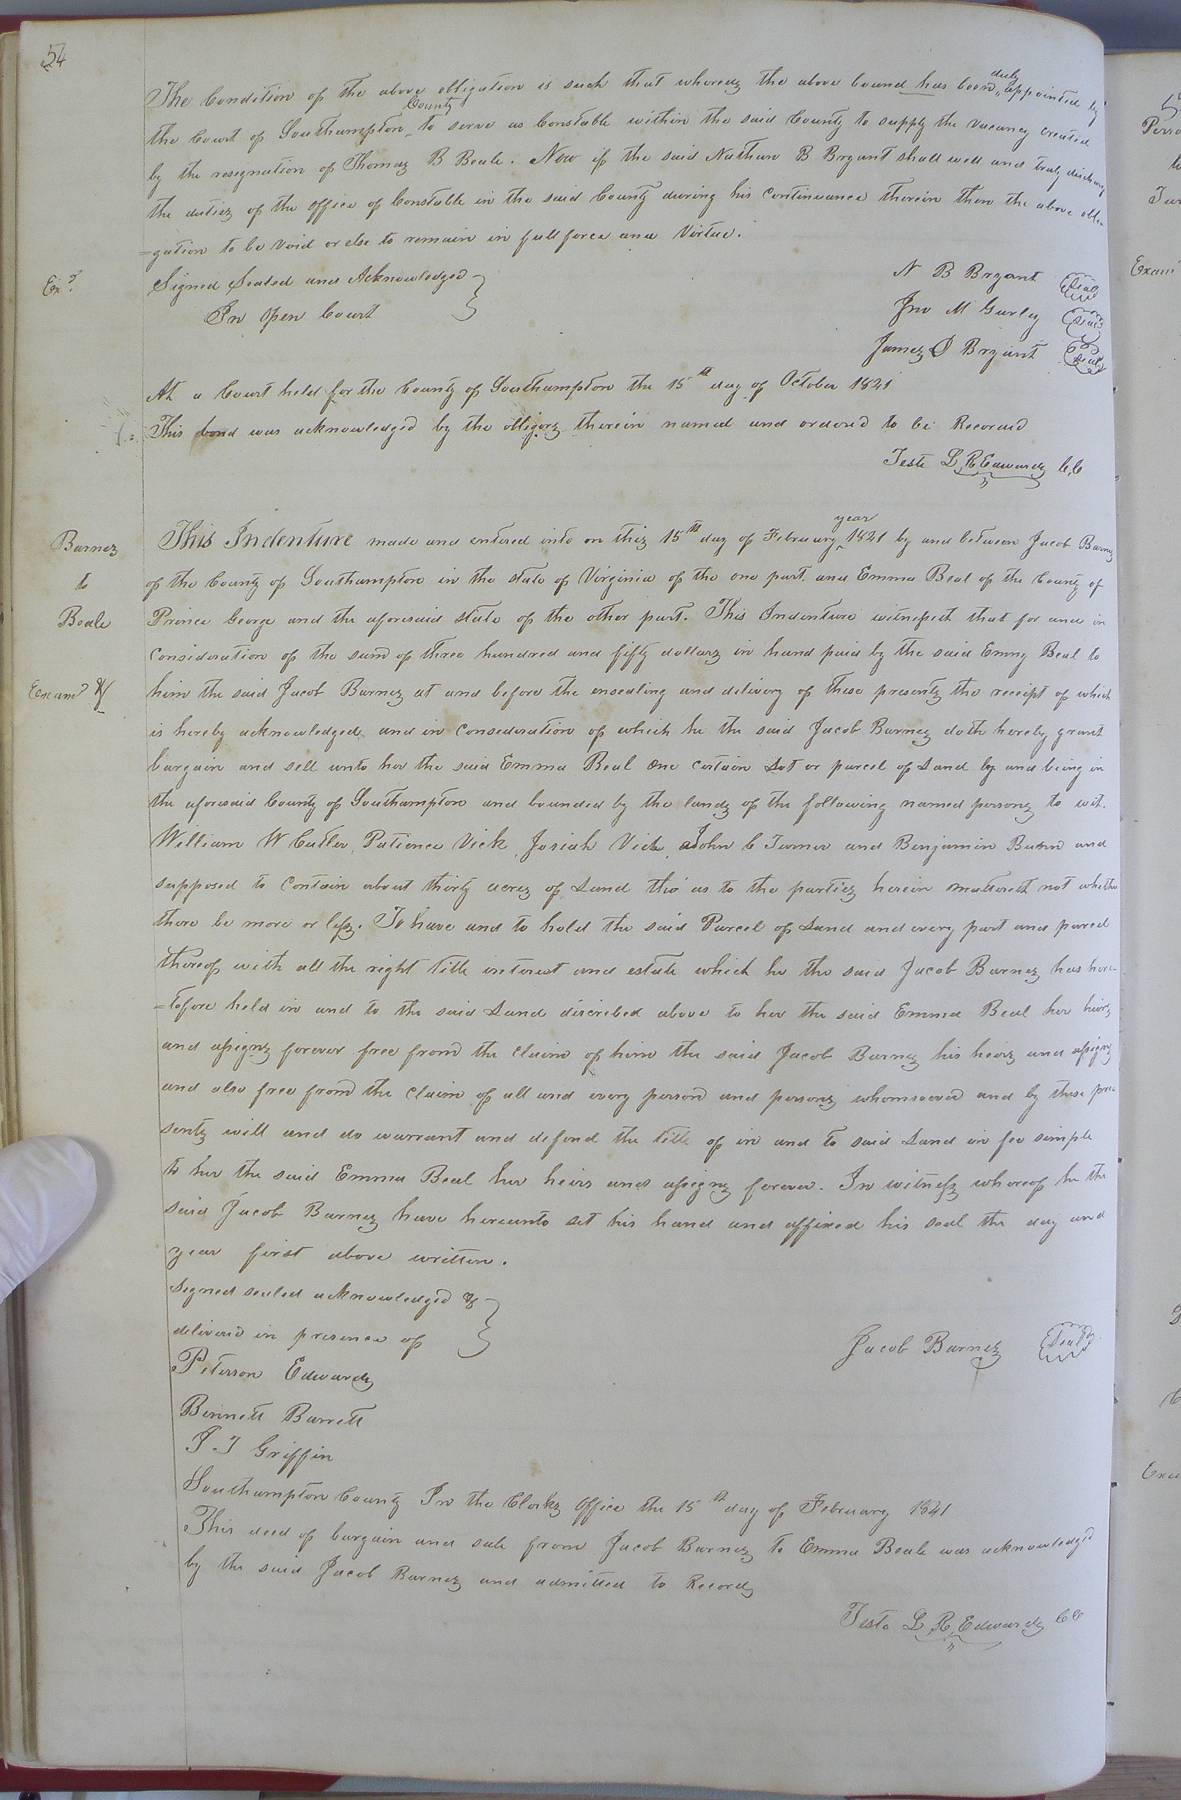 54
The Condition of the above obligation is such that whereas the above bound has been duly appointed by
the Court of Southampton County to serve as Constable within the said County to supply the vacancy created
by the resignation of Thomas B Beale. Now if the said Nathan B Bryant shall well and truly discharge
the duties of the office of Constable in the said County during his continuance therein then the above obli-
=gation to be void or else to remain in full force and Virtue.
Exd.
Signed Sealed and Acknowledged
In Open Court
N B Bryant Seal
Jno M Gurley Seal
James D Bryant Seal
At a Court held for the County of Southampton the 15th day of October 1821
This bond was acknowledged by the obligors therein named and ordered to be Recorded
Teste L. R. Edwards C.C
Barnes
to
Beale
Examd &
This Indenture made and entered into on this 15th day of February year 1821 by and between Jacob Barnes
of the County of Southampton in the state of Virginia of the one part and Emma Beal of the County of
Prince George and the aforesaid state of the other part. This Indenture witnesseth that for and in
Consideration of the sum of three hundred and fifty dollars in hand paid by the said Emmy Beal to
him the said Jacob Barnes at and before the ensealing and delivery of these presents the receipt of which
is hereby acknowledged and in Consideration of which he the said Jacob Barnes doth hereby grant
bargain and sell unto her the said Emma Beal One certain Lot or parcel of Land by and being in
the aforesaid County of Southampton and bounded by the lands of the following named persons to wit.
William W Cutler, Patience Vick, Josiah Vick, John C Turner and Benjamin and
supposed to Contain about thirty acres of Land tho' as to the parties herein mattereth not whether
there be more or less. To have and to hold the said Parcel of Land and every part and parcel
thereof with all the right title interest and estate which he the said Jacob Barnes has here-
=tofore held in and to the said Land discribed above to her the said Emma Beal her heirs
and assigns forever free from the Claim of him the said Jacob Barnes his heirs and assigns
and also free from the Claim of all and every person and persons whomsoever and by these pre-
sents will and do warrant and defend the title of in and to said Land in fee simple
to her the said Emma Beal her heirs and assigns forever. In witness whereof he the
said Jacob Barnes have hereunto set his hand and affixed his seal the day and
year first above written.
Signed sealed acknowledged &
deliverd in presence of
Jacob Barnes Seal
Peterson Edwards
Bennett Barrett
P. T Griffin
Southampton County In the Clerks Office the 15th day of February 1841
This deed of bargain and sale from Jacob Barnes to Emma Beale was acknowledged
by the said Jacob Barnes and admitted to Record
Teste L. R. Edwards CC